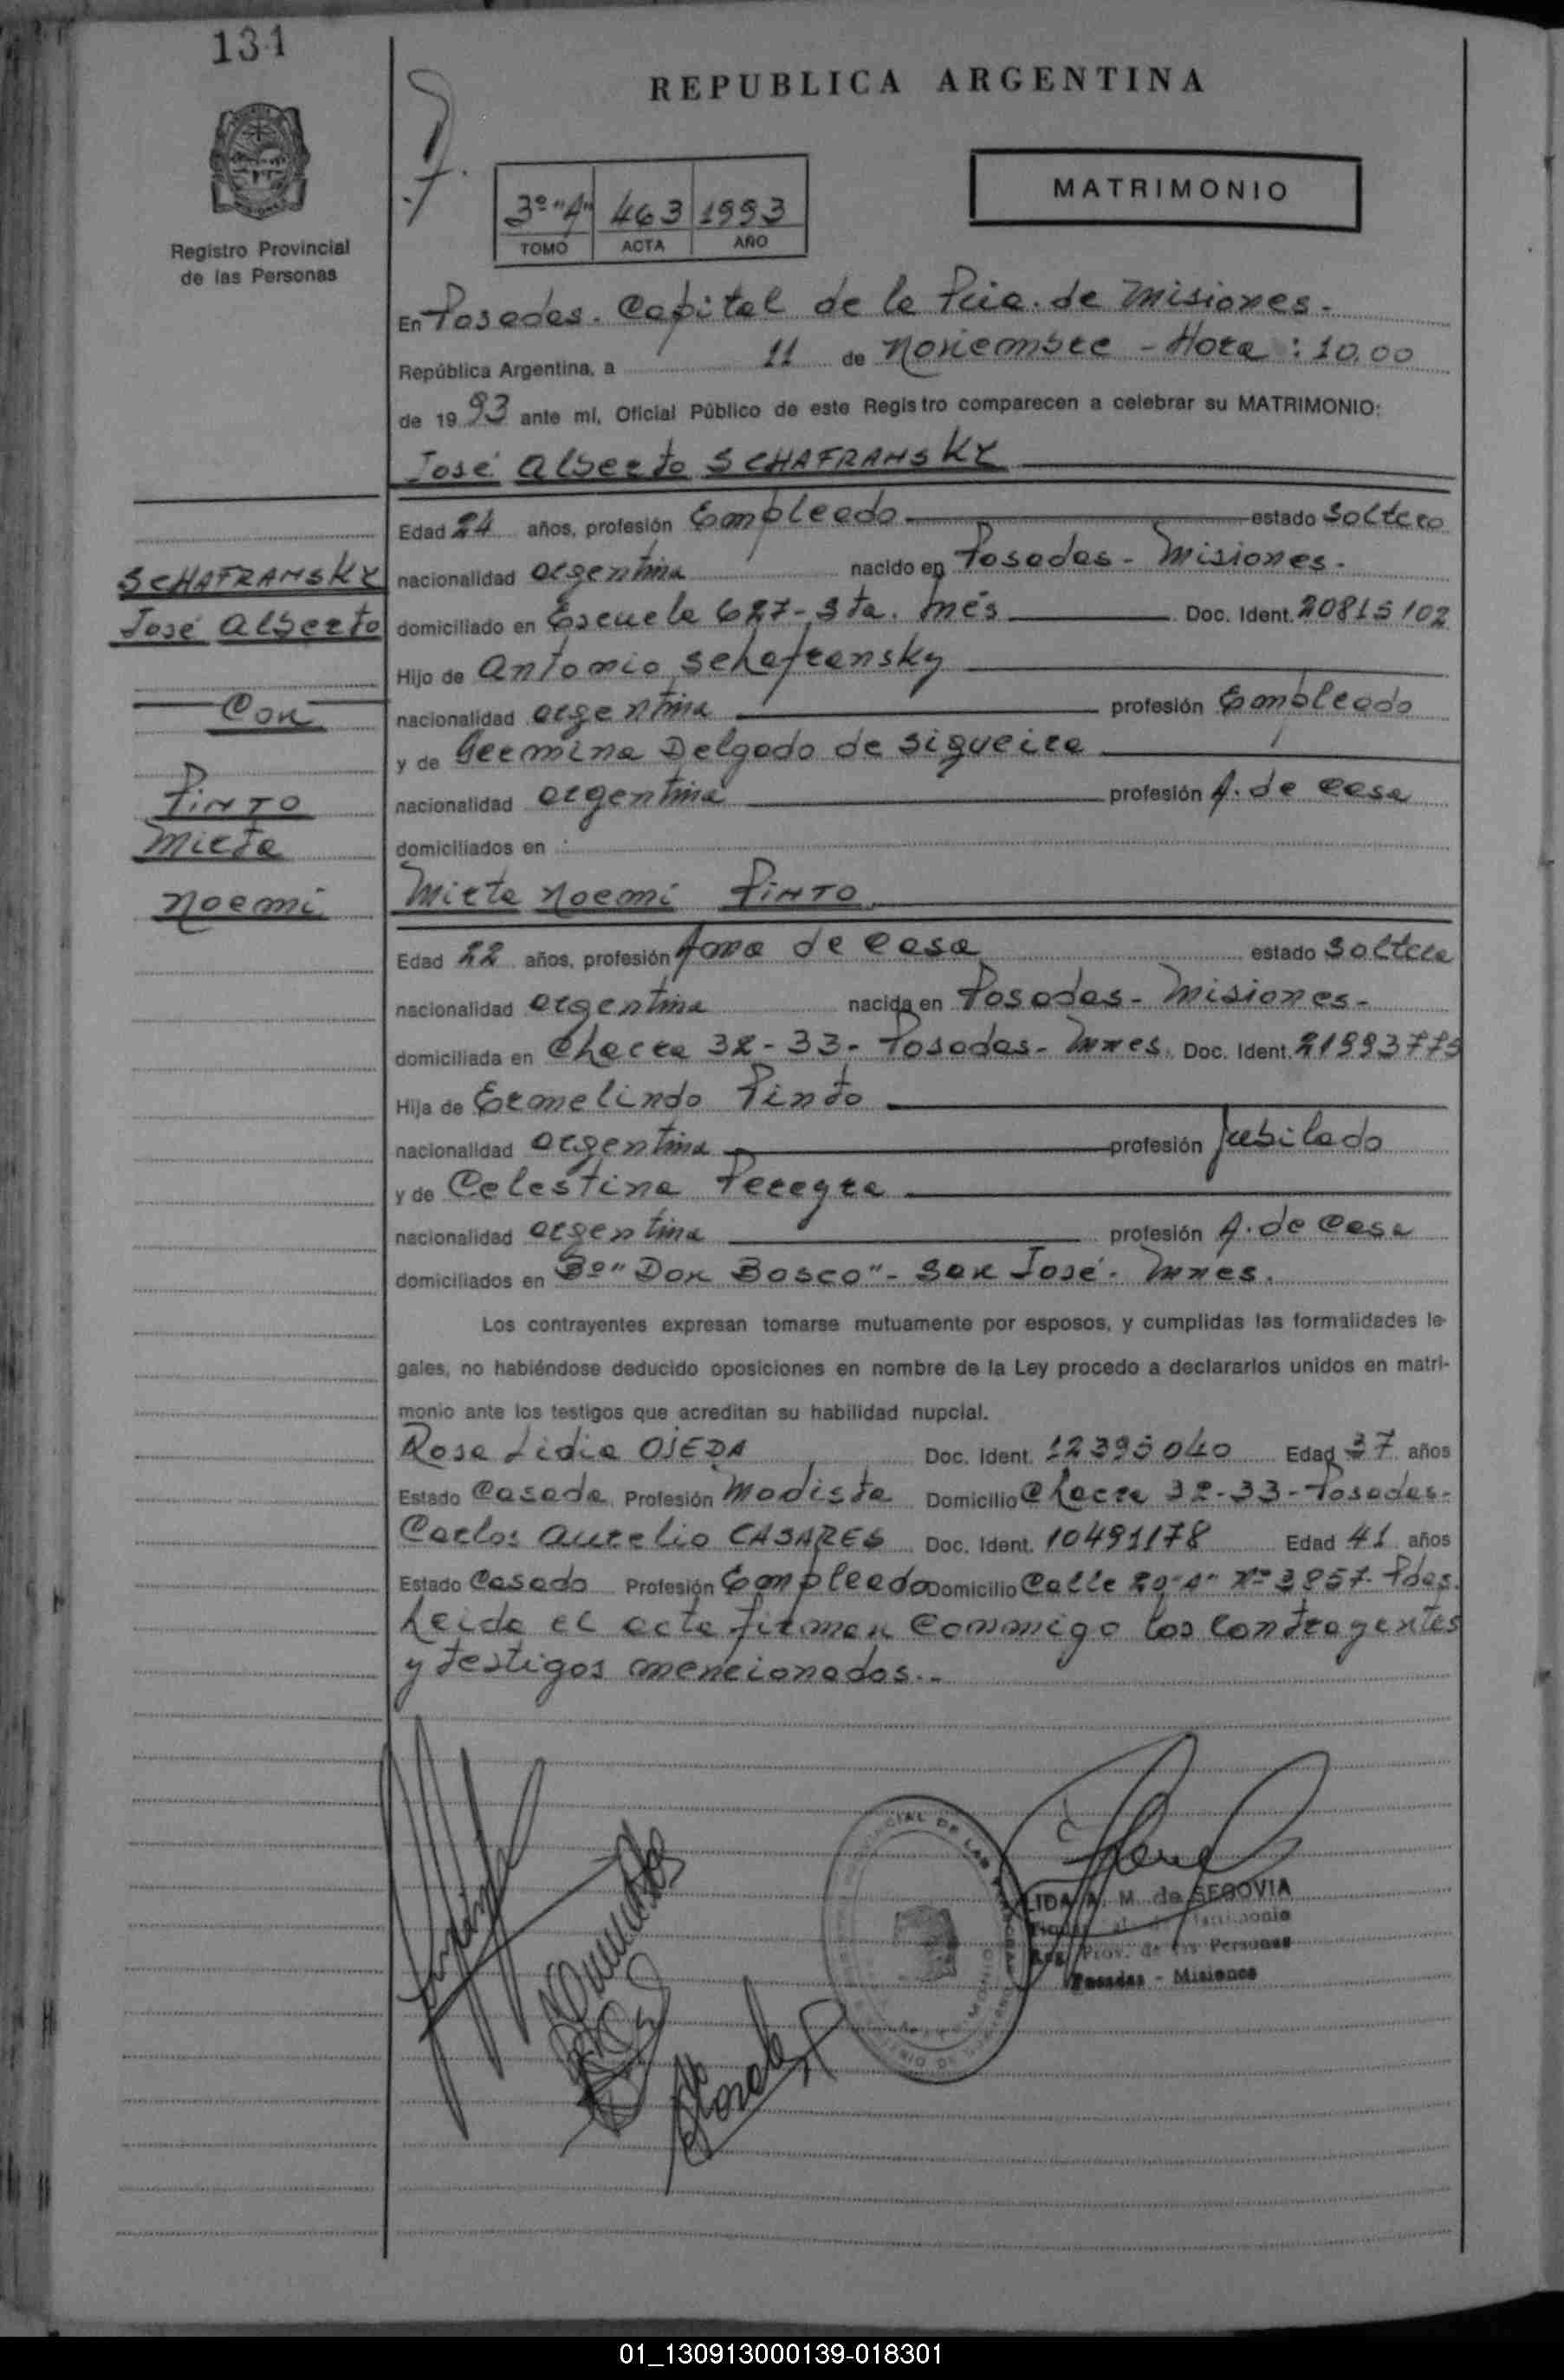 131
REPUBLICA ARGENTINA
MATRIMONIO
3º "A" 463 1993
TOMO ACTA AÑO
Registro Provincial
de las Personas
En Posadas. Capital de la Pcia. de Misiones.-
República Argentina, a 11 de Noviembre - Hora: 10,00
de 1993 ante mí, Oficial Público de este Registro comparecen a celebrar su MATRIMONIO:
José Alberto SCHAFRANSKY
Edad 24 años, profesión Empleado estado Soltero
SCHAFRANSKY
nacionalidad argentina nacido en Posadas - Misiones.
José Alberto
domiciliado en Escuela 627 - Sta. Inés Doc. Ident. 20815102
Hijo de Antonio Schafransky
Con
nacionalidad argentina profesión Empleado
y de Germina Delgado de Siqueira
PINTO
nacionalidad argentina profesión A. de Casa
Mirta
domiciliados en
Noemi
Mirta Noemi PINTO
Edad 22 años, profesión Ama de Casa estado Soltera
nacionalidad argentina nacida en Posadas - Misiones-
domiciliada en Chacra 32-33- Posadas- Mnes. Doc. Ident. 21993775
Hija de Ermelindo Pinto
nacionalidad argentina profesión Jubilado
y de Celestina Pereyra
nacionalidad argentina profesión A. de Casa
domiciliados en Bº "Don Bosco"- San José- Mnes.
Los contrayentes expresan tomarse mutuamente por esposos, y cumplidas las formalidades le-
gales, no habiéndose deducido oposiciones en nombre de la Ley procedo a declararlos unidos en matri-
monio ante los testigos que acreditan su habilidad nupcial.
Rosa Lidia OJEDA Doc. Ident. 12395040 Edad 37 años
Estado Casada Profesión Modista Domicilio Chacra 32-33-Posadas-
Carlos Aurelio CASARES Doc. Ident. 10491178 Edad 41 años
Estado Casado Profesión Empleado Domicilio Calle 20 "A" Nº 3857- Pdas.
Leida el acta firman conmigo los contrayentes
y testigos mencionados.-
M. de SEGOVIA
Prov. de las Personas
Posadas - Misiones
01_130913000139-018301